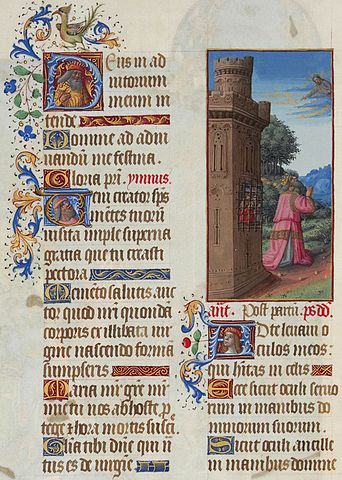 Deus in ad
iutorium
meum in
tende
Domine ad adiu
uandū me festina.
Gloria pri. ymnus.
Veni creator sps
mētes tuorū
uisita imple superna
gratia que tu creasti
pectora
Memēto salutis auc
tor quod nri quondā
corporis ex illibata uir
gine nascendo formā
sumpseris
Maria mr grē mr
mie tu nos ab hoste p
tege et hora mortis suscipe
Gloria tibi dñe qui na
tus es de uirgie
Ant. Post partū. ps dd.
Ad te leuaui o
culos meos:
qui hitas in celis
Ecce sicut oculi seruo
rum in manibus do
minorum suorum.
Sicut oculi ancille
in manibus domine